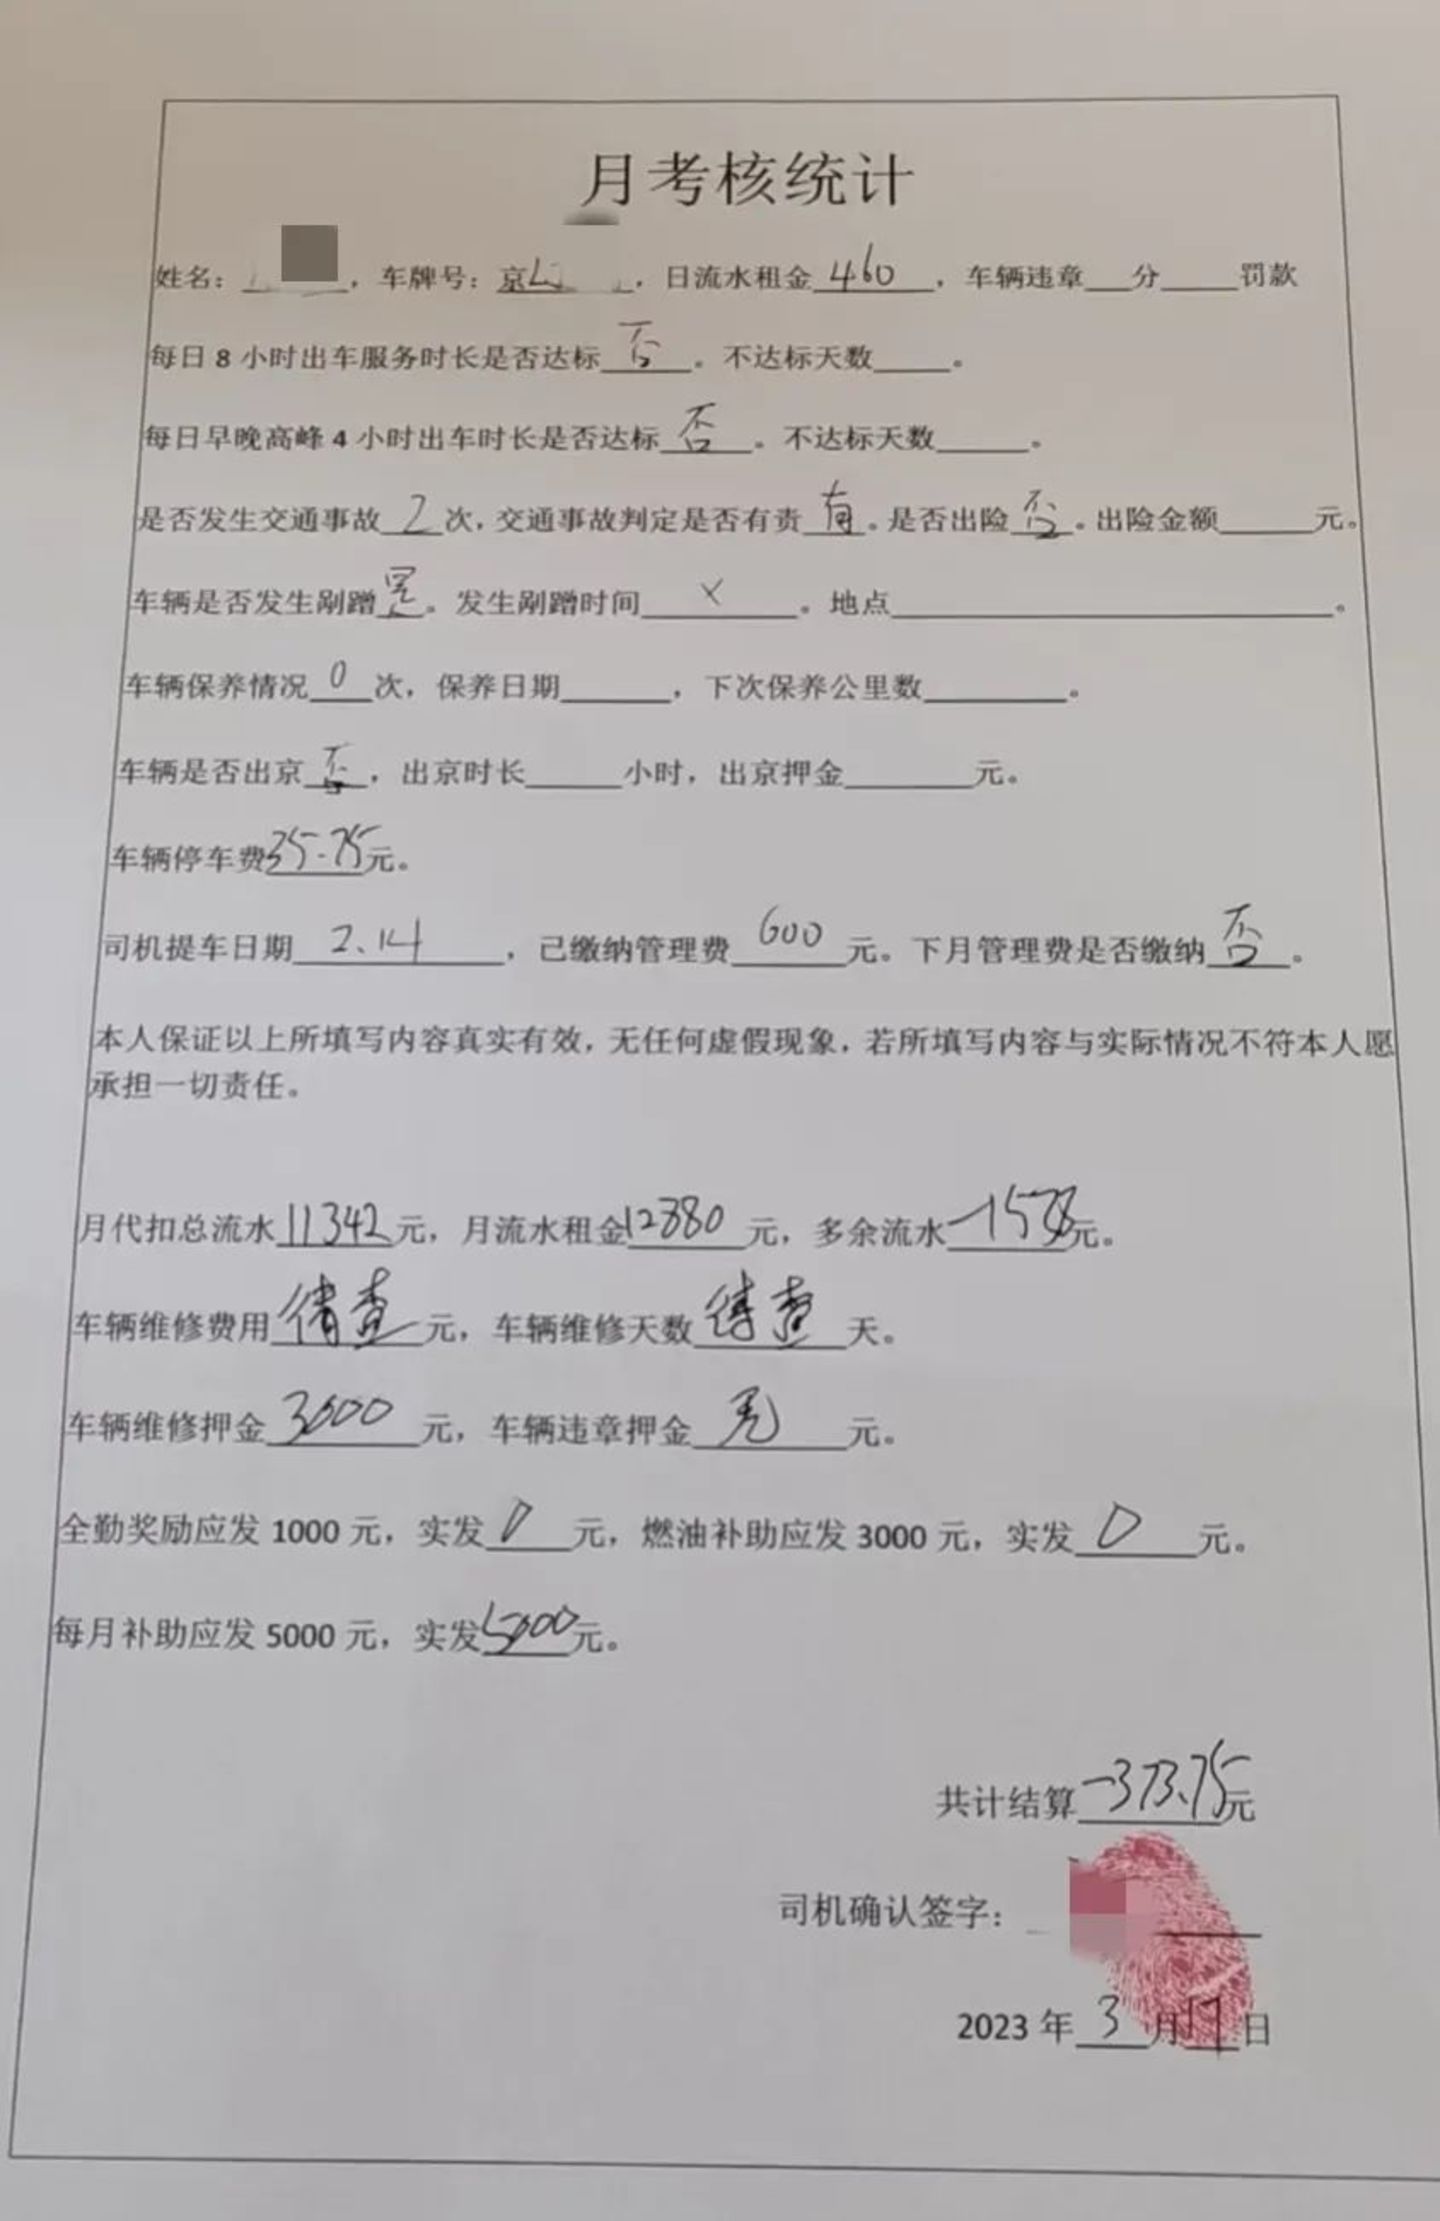 月考核统计
姓名：，车牌号：京L，日流水租金460，车辆违章___分____罚款
每日8小时出车服务时长是否达标否。不达标天数____。
每日早晚高峰4小时出车时长是否达标否。不达标天数____。
是否发生交通事故2次，交通事故判定是否有责有。是否出险否。出险金额____元。
车辆是否发生剐蹭是。发生剐蹭时间×。地点____。
车辆保养情况0次，保养日期____，下次保养公里数____。
车辆是否出京否，出京时长____小时，出京押金____元。
车辆停车费35.75元。
司机提车日期2.14，已缴纳管理费600元。下月管理费是否缴纳否。
本人保证以上所填写内容真实有效，无任何虚假现象，若所填写内容与实际情况不符本人愿
承担一切责任。
月代扣总流水11342元，月流水租金12880元，多余流水-1538元。
车辆维修费用待查元，车辆维修天数待查天。
车辆维修押金3000元，车辆违章押金元。
全勤奖励应发1000元，实发0元，燃油补助应发3000元，实发0元。
每月补助应发5000元，实发5000元。
共计结算-373.75元
司机确认签字：
2023年3月17日